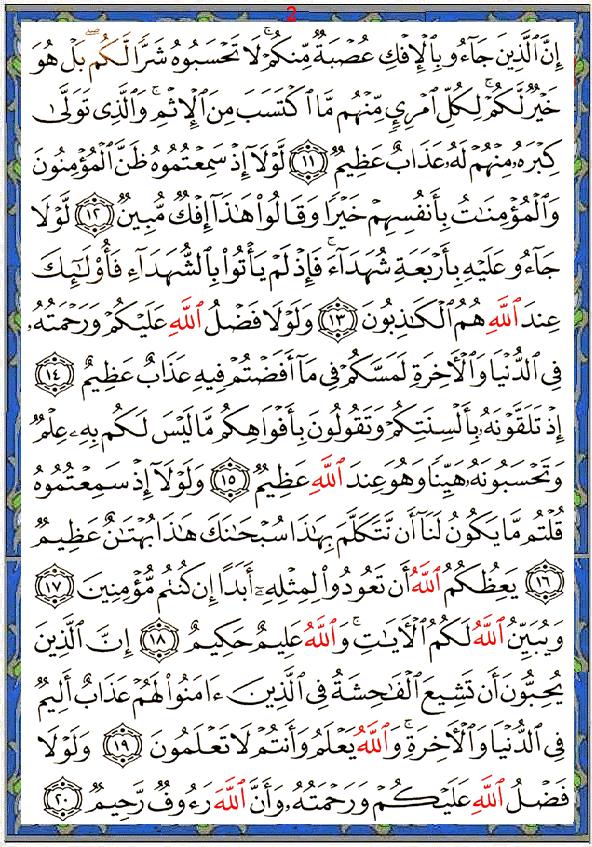 2
إِنَّ ٱلَّذِينَ جَآءُو بِٱلْإِفْكِ عُصْبَةٌ مِّنكُمْ ۚ لَا تَحْسَبُوهُ شَرًّا لَّكُم ۖ بَلْ هُوَ
خَيْرٌ لَّكُمْ ۚ لِكُلِّ ٱمْرِئٍ مِّنْهُم مَّا ٱكْتَسَبَ مِنَ ٱلْإِثْمِ ۚ وَٱلَّذِى تَوَلَّىٰ
كِبْرَهُۥ مِنْهُمْ لَهُۥ عَذَابٌ عَظِيمٌ ١١ لَّوْلَآ إِذْ سَمِعْتُمُوهُ ظَنَّ ٱلْمُؤْمِنُونَ
وَٱلْمُؤْمِنَـٰتُ بِأَنفُسِهِمْ خَيْرًا وَقَالُوا۟ هَـٰذَآ إِفْكٌ مُّبِينٌ ١٢ لَّوْلَا
جَآءُو عَلَيْهِ بِأَرْبَعَةِ شُهَدَآءَ ۚ فَإِذْ لَمْ يَأْتُوا۟ بِٱلشُّهَدَآءِ فَأُو۟لَـٰٓئِكَ
عِندَ ٱللَّهِ هُمُ ٱلْكَـٰذِبُونَ ١٣ وَلَوْلَا فَضْلُ ٱللَّهِ عَلَيْكُمْ وَرَحْمَتُهُۥ
فِى ٱلدُّنْيَا وَٱلْـَٔاخِرَةِ لَمَسَّكُمْ فِى مَآ أَفَضْتُمْ فِيهِ عَذَابٌ عَظِيمٌ ١٤
إِذْ تَلَقَّوْنَهُۥ بِأَلْسِنَتِكُمْ وَتَقُولُونَ بِأَفْوَاهِكُم مَّا لَيْسَ لَكُم بِهِۦ عِلْمٌ
وَتَحْسَبُونَهُۥ هَيِّنًا وَهُوَ عِندَ ٱللَّهِ عَظِيمٌ ١٥ وَلَوْلَآ إِذْ سَمِعْتُمُوهُ
قُلْتُم مَّا يَكُونُ لَنَآ أَن نَّتَكَلَّمَ بِهَـٰذَا سُبْحَـٰنَكَ هَـٰذَا بُهْتَـٰنٌ عَظِيمٌ
١٦ يَعِظُكُمُ ٱللَّهُ أَن تَعُودُوا۟ لِمِثْلِهِۦٓ أَبَدًا إِن كُنتُم مُّؤْمِنِينَ ١٧
وَيُبَيِّنُ ٱللَّهُ لَكُمُ ٱلْـَٔايَـٰتِ ۚ وَٱللَّهُ عَلِيمٌ حَكِيمٌ ١٨ إِنَّ ٱلَّذِينَ
يُحِبُّونَ أَن تَشِيعَ ٱلْفَـٰحِشَةُ فِى ٱلَّذِينَ ءَامَنُوا۟ لَهُمْ عَذَابٌ أَلِيمٌ
فِى ٱلدُّنْيَا وَٱلْـَٔاخِرَةِ ۚ وَٱللَّهُ يَعْلَمُ وَأَنتُمْ لَا تَعْلَمُونَ ١٩ وَلَوْلَا
فَضْلُ ٱللَّهِ عَلَيْكُمْ وَرَحْمَتُهُۥ وَأَنَّ ٱللَّهَ رَءُوفٌ رَّحِيمٌ ٢٠